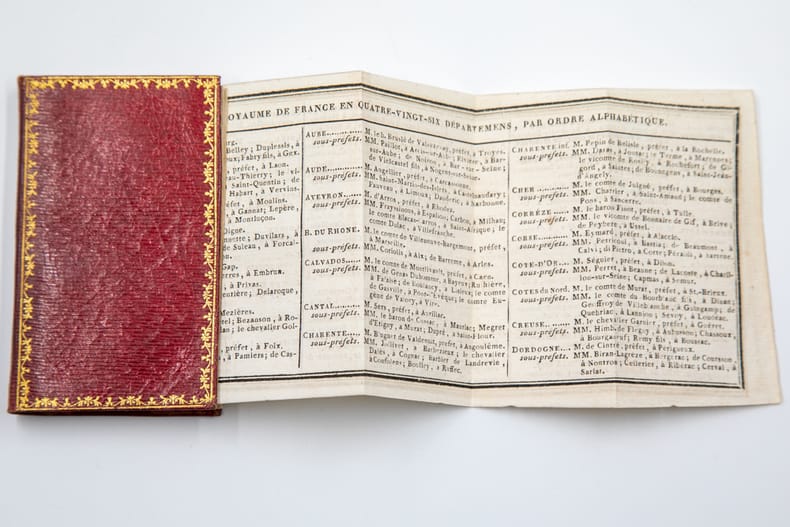 OYAUME DE FRANCE EN QUATRE-VINGT-SIX DÉPARTEMENS, PAR ORDRE ALPHABÉTIQUE.
rg.
Belley; Duplessis, à
oux; Fabry fils, à Gex.
préfet, à Laon.
au-Thierry; le vi-
Saint-Quentin; de
Habart, à Vervins.
préfet, à Moulins.
à Gannat; Lepère,
à Montluçon.
Digne.
nette; Duvilars, à
de Suleau, à Forcal-
Gap.
ières, à Embrun.
à Privas.
entière; Delaroque,
Mézières.
rel; Bezanson, à Ro-
; le chevalier Gol-
préfet, à Foix.
, à Pamiers; de Cas-
AUBE............ M. le b. Brulé de Valsuzenay, préfet, à Troyes.
sous-préfets. MM. Paillot, à Arcis-sur-Aube; Rivière, à Bar-
sur-Aube; de Noiron, à Bar-sur-Seine;
de Vielcastel fils, à Nogent-sur-Seine.
AUDE............ M. Angellier, préfet, à Carcassonne.
sous-préfets. MM. Saint-Martin-des-Islets, à Castelnaudary;
Fauveau, à Limoux; Dauderic, à Narbonne.
AVEYRON...... M. d'Arros, préfet, à Rhodez.
sous-préfets. MM. Frayssinous, à Espalion; Carbon, à Milhau;
le comte à Saint-Afrique; le
comte Dulac, à Villefranche.
B. DU RHONE. M. le comte de Villeneuve-Bargemont, préfet,
sous-préfets. à Marseille.
MM. Coriolis, à Aix; de Barreme, à Arles.
CALVADOS...... M. le comte de Montlivault, préfet, à Caen.
sous-préfets. MM. de Genas Duhomme, à Bayeux; Rulhière,
à Falaise; de Boislaucy, à Lisieux; le comte
de Gasville, à Pont-l'Evêque; le comte Eu-
gène de Valory, à Vire.
CANTAL......... M. Sers, préfet, à Aurillac.
sous-préfets. MM. le baron de Cussac, à Mauriac; Megret
d'Etigny, à Murat; Dupré, à Saint-Flour.
CHARENTE...... M. Blugnet de Valdenuit, préfet, à Angoulême.
sous-préfets. MM. Jollivet, à Barbezieux; le chevalier
Dalès, à Cognac; Barbier de Landrevie,
à Confolens; Boulley, à Ruffec.
CHARENTE inf. M. Pepin de Belisle, préfet, à la Rochelle.
sous-préfets. MM. Duras, à Jonzac; le Terme, à Marennes;
le vicomte de à Rochefort; de Gi-
gord, à Saintes; de Bounegens, à Saint-Jean-
d'Angely.
CHER............ M. le comte de Juigné, préfet, à Bourges.
sous-préfets. MM. Charrier, à Saint-Amand; le comte de
Pons, à Sancerre.
CORRÈZE...... M. le baron Finot, préfet, à Tulle.
sous-préfets. MM. le vicomte de Bonnaire de Gif, à Brive;
de Peyberè, à Ussel.
CORSE......... M. Eymard, préfet, à Ajaccio.
sous-préfets. MM. Petriconi, à Bastia; de Beaumont, à
Calvi; di Pietro, à Corte; Peraldi, à Sartene.
COTE-D'OR.... M. Séguier, préfet, à Dijon.
sous-préfets. MM. Perret, à Beaune; de Lacoste, à Chatil-
lon-sur-Seine; Capmas, à Semur.
COTES du Nord. M. le comte de Murat, préfet, à St.-Brieux.
sous-préfets. MM. le comte du Bourblanc fils, à Dinan;
Geoffroy de Villeblanche, à Guingamp; de
Quebriac, à Lannion; Sevoy, à Loudéac.
CREUSE......... M. le chevalier Garnier, préfet, à Guéret.
sous-préfets. MM. Himb. de Flegny, à Aubusson; Chassoux,
à Bourganeuf; Rémy fils, à Boussac.
DORDOGNE.... M. de Cintré, préfet, à Périgueux.
sous-préfets. MM. Biran-Lagrèze, à Bergerac; de Courson,
à Nontron; Ceilerier, à Ribérac; Cerval, à
Sarlat.